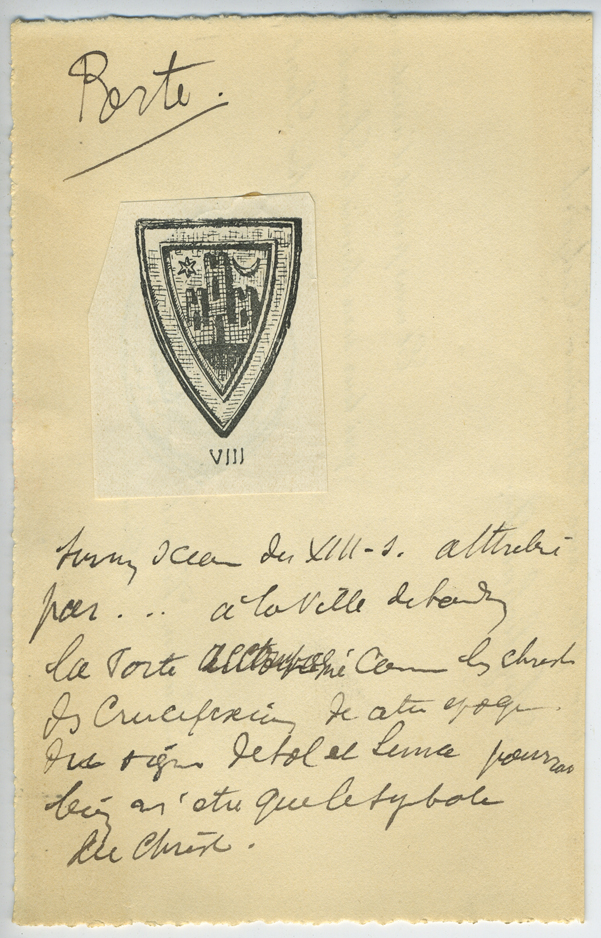 Porte.
VIII
sceau du XIII-s. attribué
par ... à la Ville de
la Porte comme les christ
de Crucifixion de cette époque
du signe de Sol et Luna pourrait
bien n'être que le symbole
du Christ.